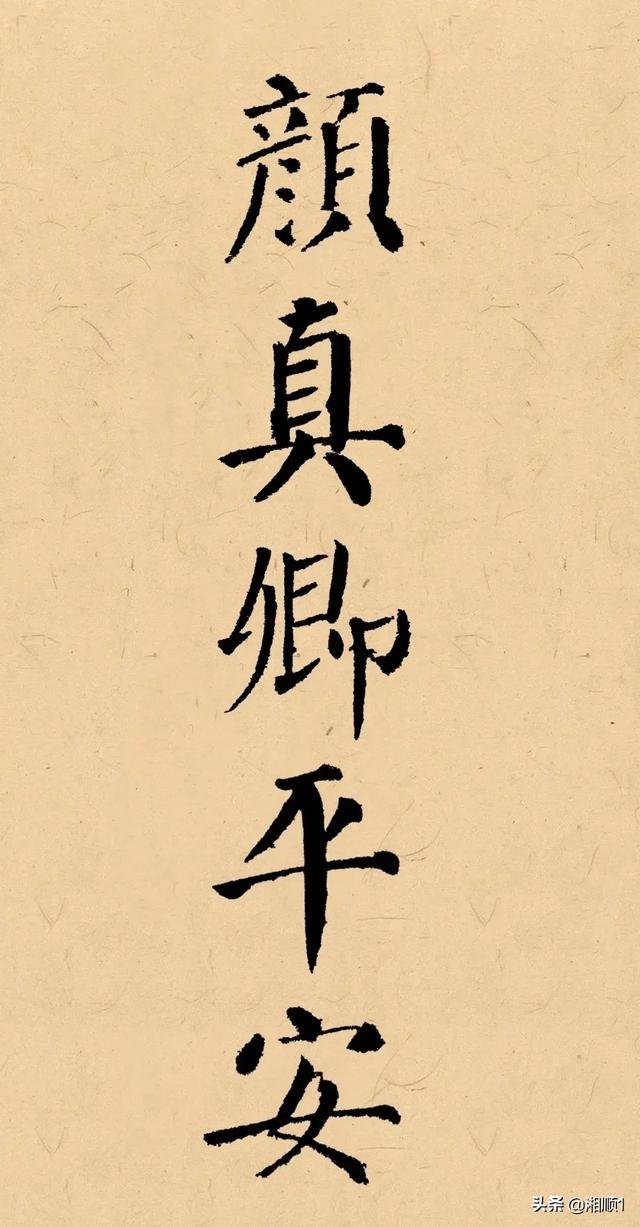 顔真卿平安
头条 @湘顺1